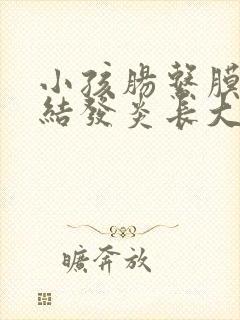 小孩腸繫膜
結發炎長大
曠奔放